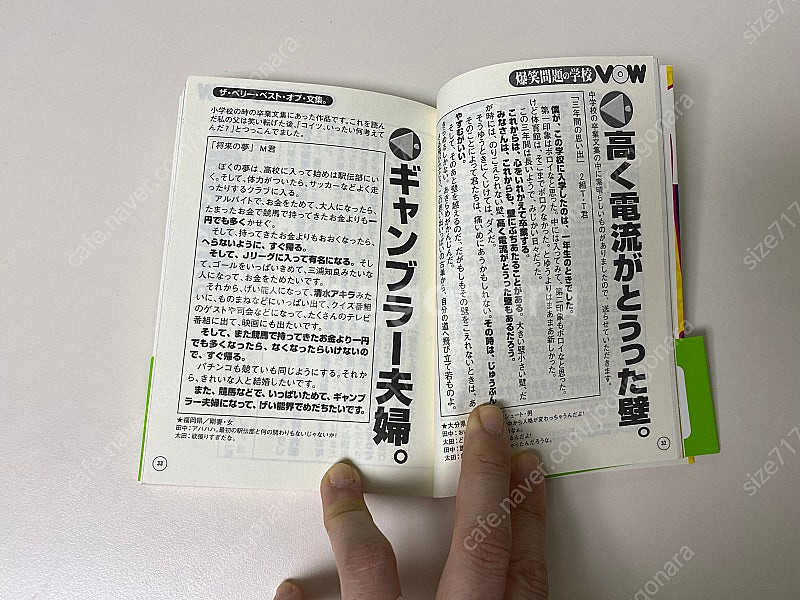 爆笑問題の学校 VOW
高く電流がとうった壁。
中学校の卒業文集の中に素晴らしいものがありましたので、送らせていただきます。
「三年間の思い出」 2組T・T君
僕が、この学校に入学したのは、一年生のときでした。
第一印象はボロイなと思った。中には入ってみて、第二印象もボロイなと思った。
けど体育館は、そこまでボロくなかった。とゆうよりはまあまあ新しかった。
この三年間は長いようで、みじかい日々だった。
これからは、心をいれかえて卒業する。
みなさんは、これからも、壁にぶちあたることがある。大きい壁小さい壁、だ
が時には、のりこえられない壁、高く電流がとうった壁もあるだろう。
そうゆうときにくじけては、ダメだ。
そのことによって君たちは、痛いめにあうかもしれない。その時は、じゅうぶん
やすむがいい。
そして、そのあと壁を越えるのだ、だがもしもその壁をこえれないときは、あ
自分の道へ飛び立て若ものよ。
★大分県
シュート・男
田中:
太田:
33
ザ・ベリー・ベスト・オブ・文集。
小学校の時の卒業文集にあった作品です。これを読ん
だ私の父は笑い転げた後、「コイツ、いったい何考えて
んだ?」とつっこんでました。
ギャンブラー夫婦。
「将来の夢」 M君
ぼくの夢は、高校に入って始めは駅伝部にい
く。そして、体力がついたら、サッカーなどよく走
ったりするクラブに入る。
アルバイトで、お金をためて、大人になったら、
たまったお金で競馬で持ってきたお金よりも一
円でも多くかせぐ。
そして、持ってきたお金よりもおおくなったら、
へらないように、すぐ帰る。
そして、Jリーグに入って有名になる。そし
て、ゴールをいっぱいきめて、三浦知良みたいな
人になって、お金をためたいです。
それから、げい能人になって、清水アキラみた
いに、ものまねなどにいっぱい出て、クイズ番組
のゲストや司会などになって、たくさんのテレビ
番組に出て、映画にも出たいです。
そして、また競馬で持ってきたお金より一円
でも多くなったら、なくなったらいけないの
で、すぐ帰る。
パチンコも競ているも同じようにする。それか
ら、きれいな人と結婚したいです。
また、競馬などで、いっぱいためて、ギャンブ
ラー夫婦になって、げい能界でめだちたいです。
★福岡県/剛妻・女
田中:アハハハ。最初の駅伝部と何の関わりもないじゃないか!
太田:欲張りすぎだな。
32
cafe.naver.com/joonggonara
size717